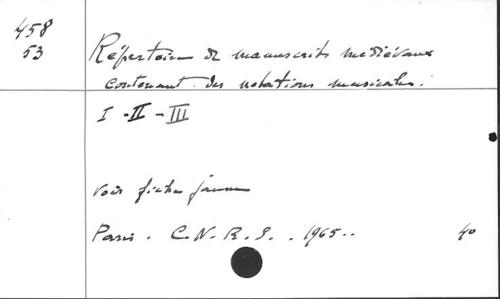 458
53
Répertoire de manuscrits médiévaux
contenant des notations musicales.
I - II - III
Voir fiche jaune
Paris. C.N.R.S. . 1965..
4°